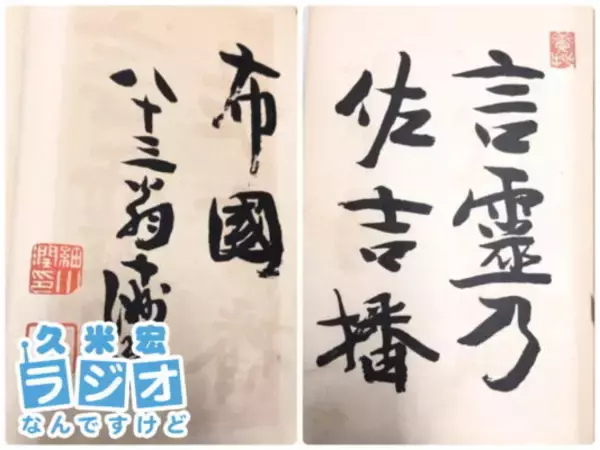 言靈乃
佐吉播
布國
八十三翁十洲
細川
潤印
久米宏
ラジオ
なんですけど